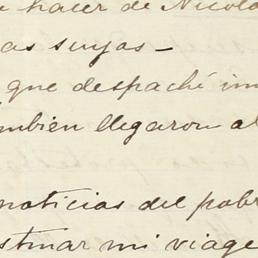 hacer de Nicola
as suyas -
que despaché in
mbien llegaron al
noticias del pobr
stinar mi viage